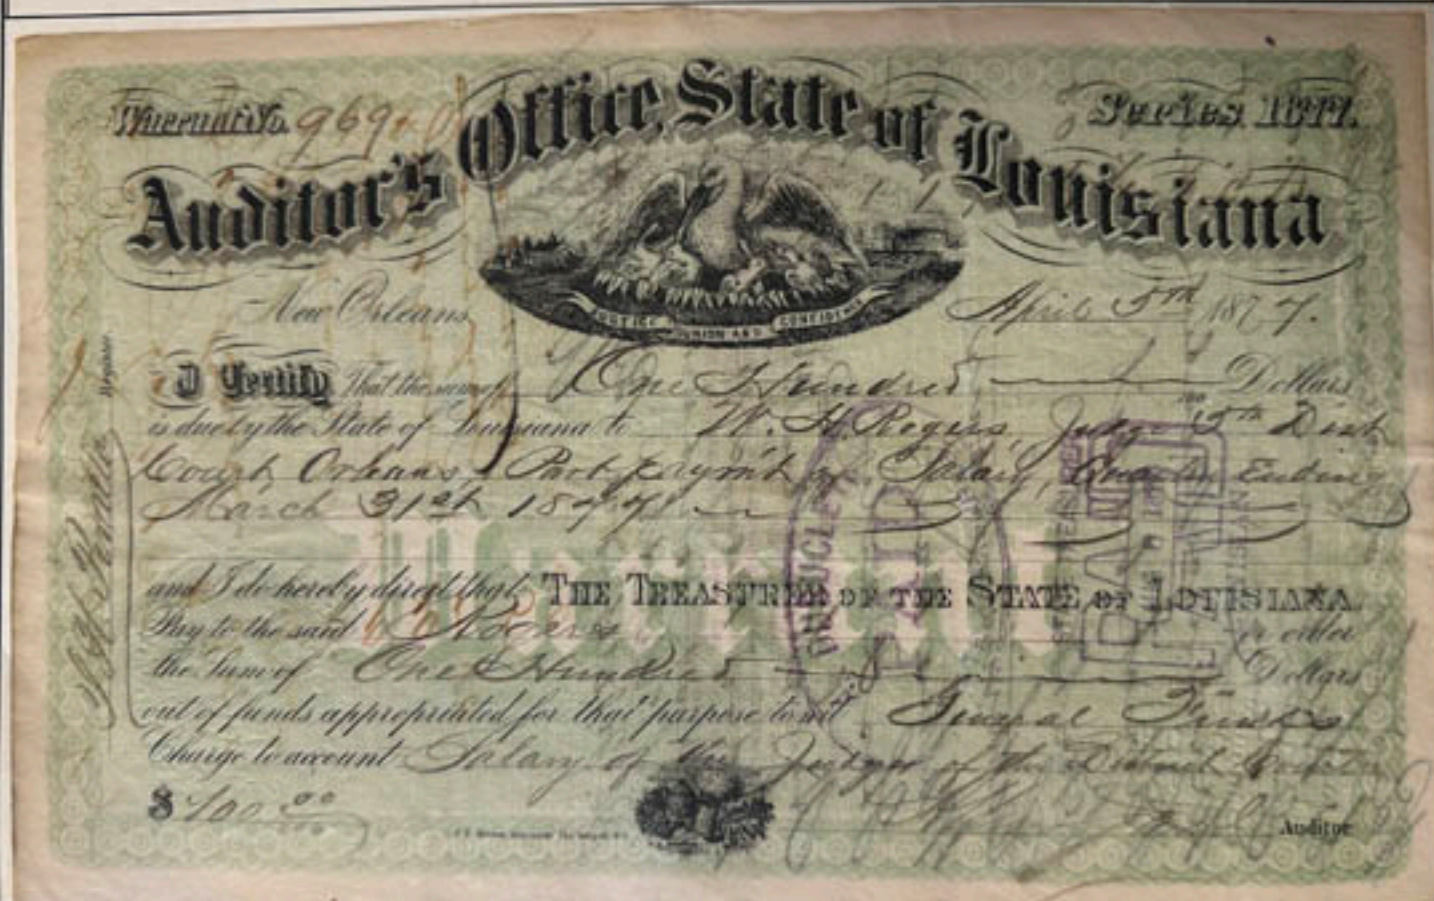 Warrant No. 969
Series 1877.
Auditor's Office, State of Louisiana
UNION AND CONFIDENCE
New Orleans, April 5th 1877.
I Certify That the sum of One Hundred Dollars
is due by the State of Louisiana to W. H. Rogers, Judge 5th Dist
Court, Orleans, Part paym't of Salary, Quarter Ending
March 31st 1877
and I do hereby direct that THE TREASURER OF THE STATE OF LOUISIANA.
Pay to the said Rogers or order
the Sum of One Hundred Dollars
out of funds appropriated for that purpose to wit General Funds
Charge to account Salary of the Judges of the District Courts
$ 100.00
Auditor
Register
Warrant
DUBUCLET
PAID
PAID